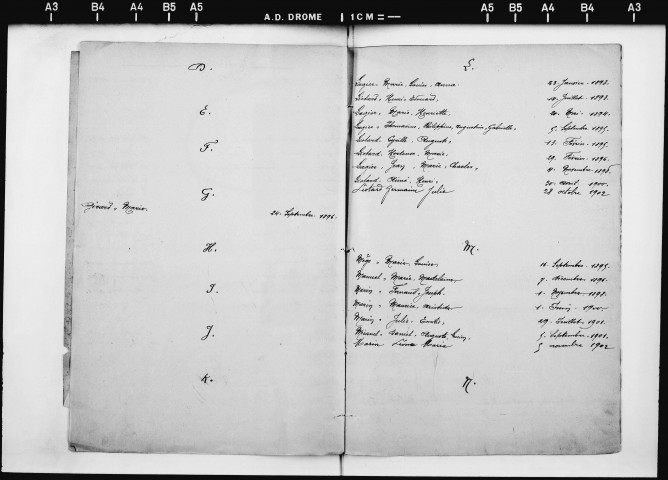 A3 B4 A4 B5 A5 A.D. DROME 1CM = A5 B5 A4 B4 A3
D.
E.
F.
G.
Girard, Marie. 24 Septembre 1896.
H.
I.
J.
K.
L.
Lagier, Marie, Louise, Anna 23 Janvier 1893.
Liotard, Henri, Édouard, Juillet 1893.
Lagier, Marie, Henriette. Mai 1894.
Lagier, Philippine, Augustin, Gabrielle, 5 Septembre 1895.
Liotard, Cyrille, Auguste, 13 Février 1895.
Liotard, Hortense, Marie, 29 Février 1896.
Lagier, Jean, Marie, Charles, Novembre 1898.
Liotard, Aimé, Henri, 30 avril 1900.
Liotard Germaine Julie 28 octobre 1902
M.
Marie, Louise Septembre 1895.
Marie, Madeleine 7 décembre 1896.
Marin, Fernand, Joseph. 1 Novembre 1898.
Marin, Maurice, Aristide 1900.
Marin, Julie, Emilie, 29 Juillet 1901.
Daniel, Auguste, 5 Septembre 1901.
Marin Léonce Marie 5 novembre 1902
N.